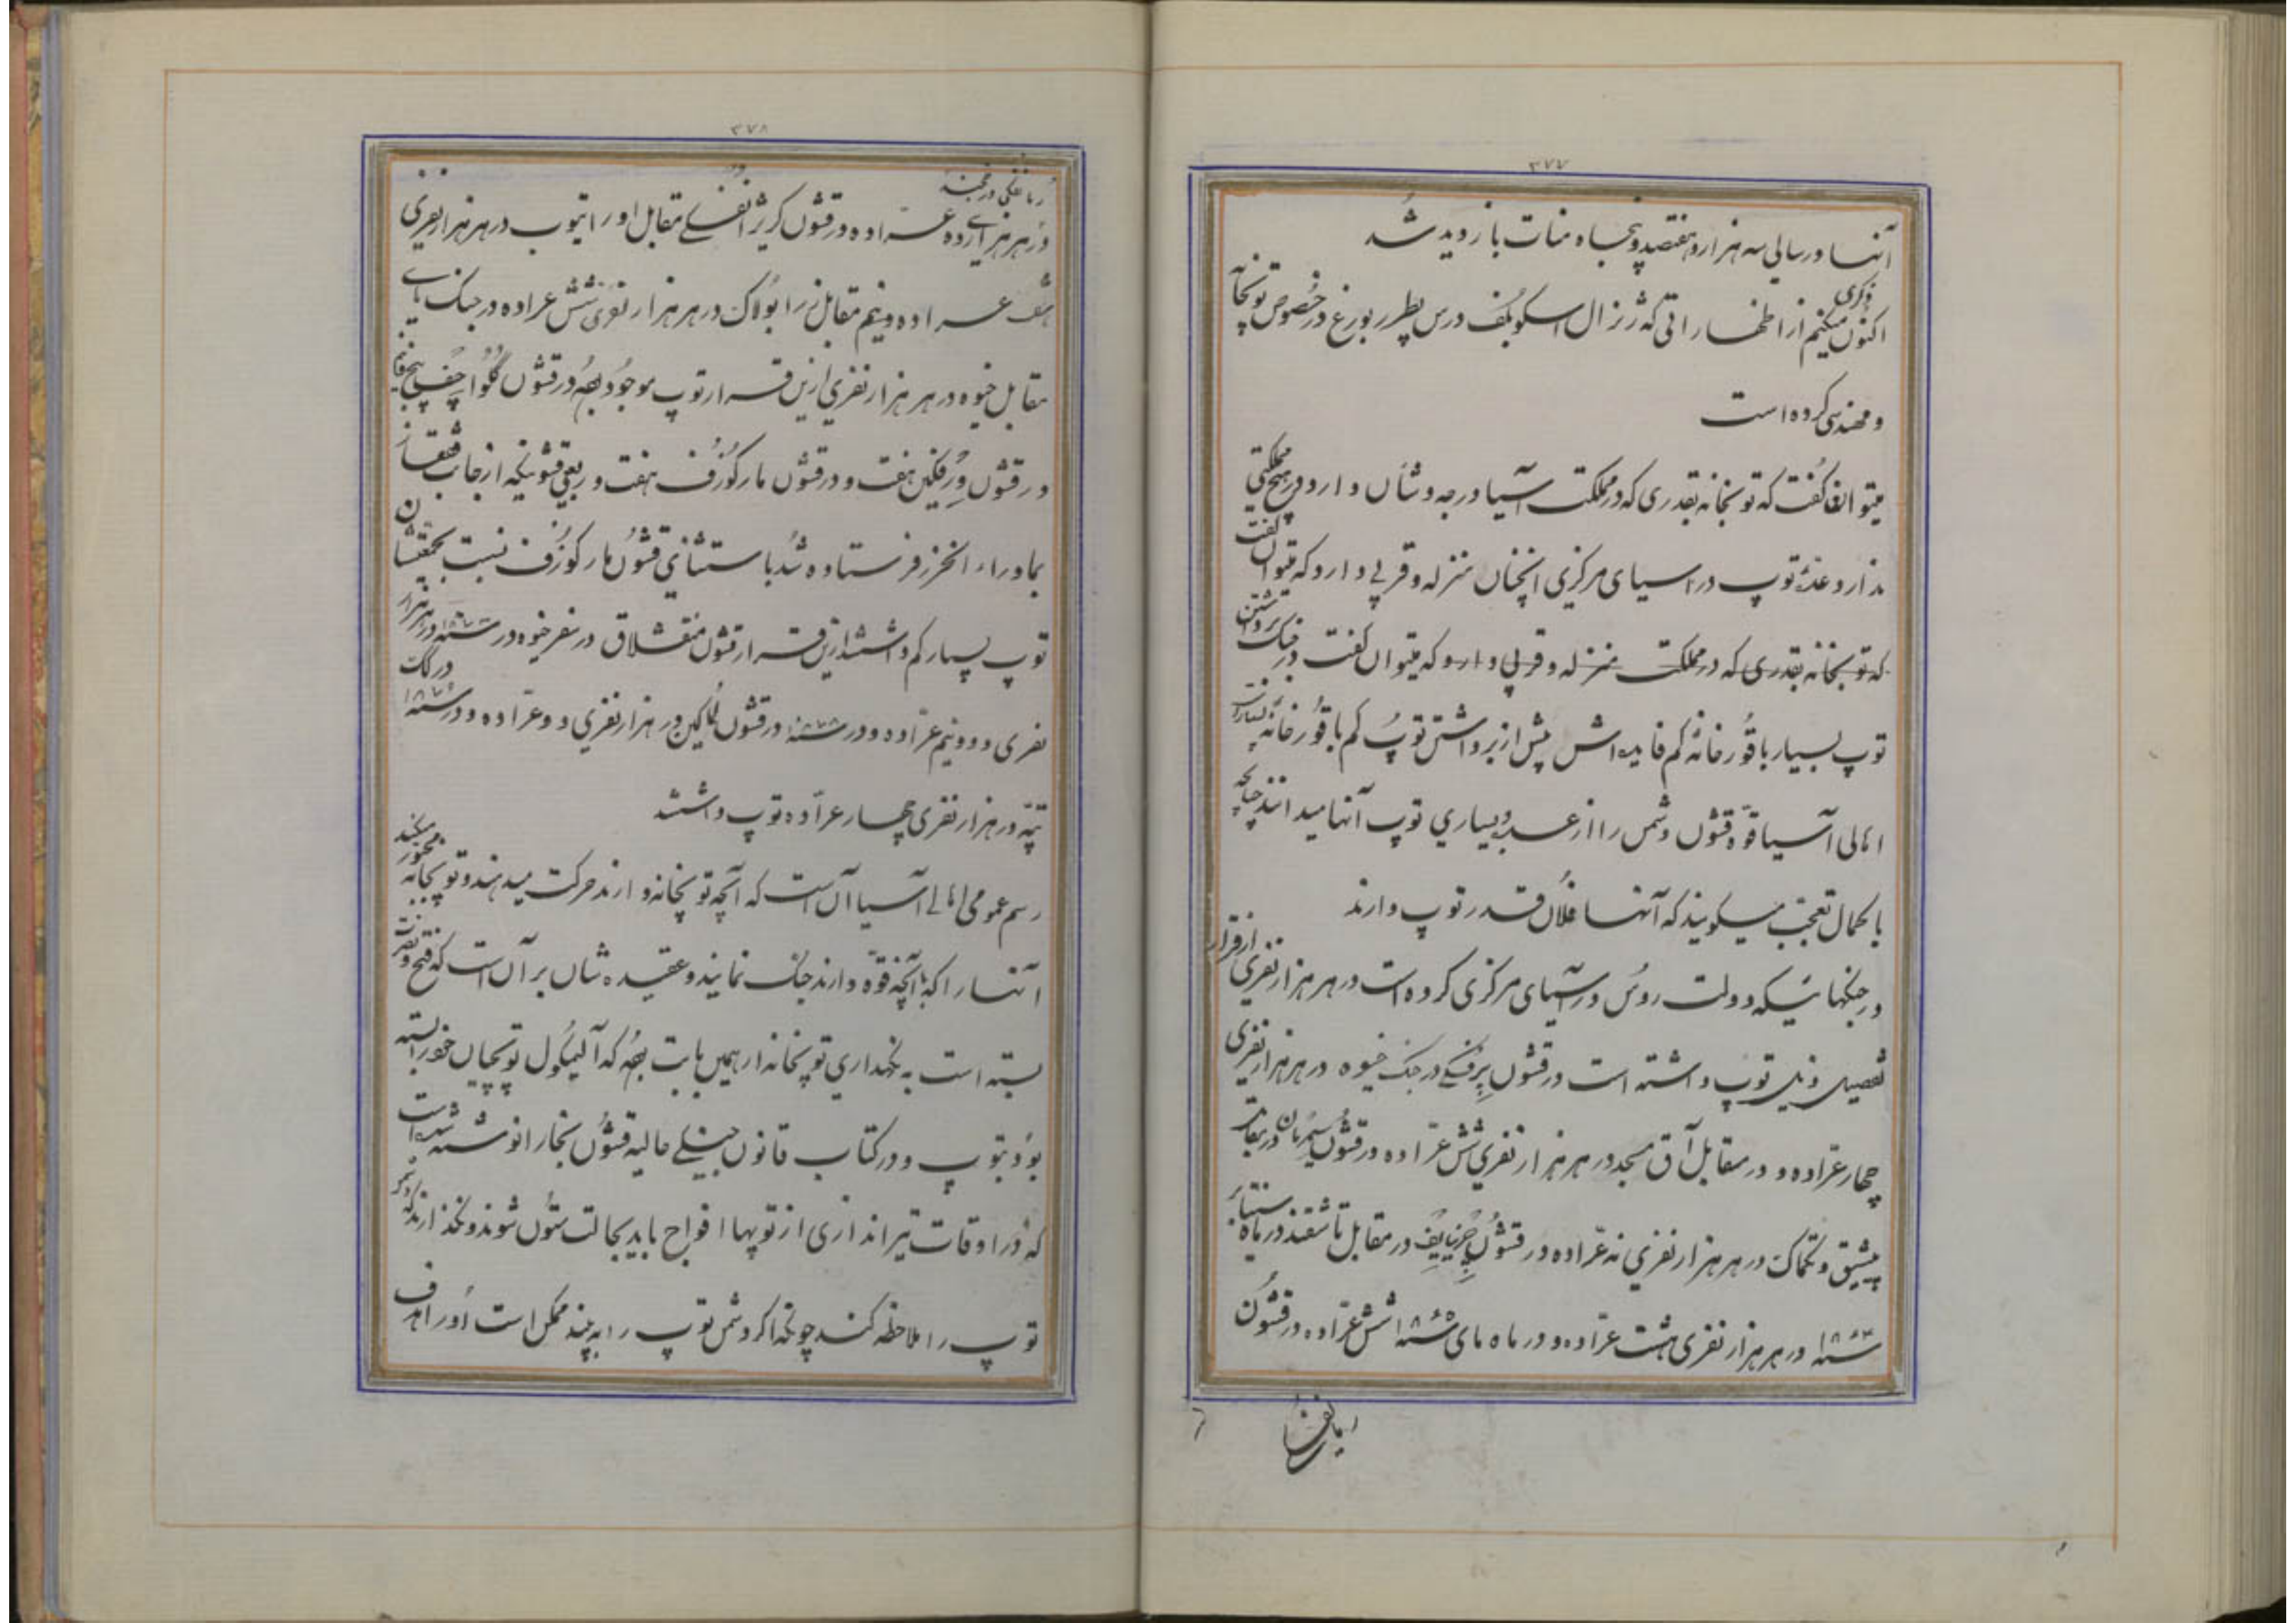 ۳۷۷
آنها در سالی سه هزار و هفتصد و پنجاه منات بازدید شد
اکنون ذکری میکنیم از اظهاراتی که ژنرال اسکوبلف در سن پطرربورغ در خصوص توپخانه
و مهندسی کرده است
میتوان گفت که توپخانه بقدری که در مملکت آسیا درجه و شأن دارد در هیچ مملکتی
ندارد و عدّۀ توپ در اسیای مرکزی انچنان منزله و قربی دارد که میتوان گفت
که توپخانه بقدری که در مملکت منزله و قربی دارد که میتوان گفت در جنک برداشتن
توپ بسیار با قورخانۀ کم فایده اش بیش از برداشتن توپ کم با قورخانۀ بسیار است
اهالی آسیا قوّۀ قشون دشمن را از عدد و بسیاری توپ آنها میدانند چنانچه
با کمال تعجّب میکویند که آنها فلان قدر توپ دارند
در جنکهائیکه دولت روس در آسیای مرکزی کرده است در هر هزار نفری از قرار
تفصیل ذیل توپ داشته است در قشون پرفسکی در جنک خیوه در هر هزار نفری
چهار عرّاده و در مقابل آق مسجد در هر هزار نفری شش عرّاده در قشون
پیشپق و تکماک در هر هزار نفری نه عرّاده در قشون چرنایف در مقابل تاشقند در ماه سنتابر
سنه ۱۸۶۴ در هر هزار نفری هشت عرّاده و در ماه مای سنه ۱۸۶۵ شش عرّاده در قشون
۳۷۸
در هر هزاری ده عرّاده در قشون کریژانفسکی مقابل اوراتیوب در هر هزار نفری
هفت عراده و نیم مقابل زرابولاک در هر هزار نفری شش عراده در جنک
مقابل خیوه در هر هزار نفری ازین قرار توپ موجود بوده در قشون کلواچف پنج
در قشون ورفکین هفت و در قشون مارکوزف هفت و ربعی قشونیکه از جانب قفقاز
بماوراء الخزر فرستاده شد باستثنای قشون مارکوزف نسبت
توپ بسیار کم داشتند ازین قرار قشون منقشلاق در سفر خیوه در سنه ۱۸۷۳ در هر هزار
نفری دو و نیم عرّاده و در سنه ۱۸۷۸ در قشون لماکین در هزار نفری دو عرّاده و در سنه ۱۸۷۹ در کک
تپّه در هزار نفری چهار عرّاده توپ داشتند
رسم عمومی اهالی آسیا آن است که آنچه توپخانه دارند حرکت میدهند و توپخانه مجبور میکند
آنها را که با آنچه قوّه دارند جنک نمایند و عقیده شان بر آن است که فتح و نصرت
بسته است به نکهداری توپخانه از همین بابت بوده که آلیمکول توپچیان خود را بسته
بود بتوپ و در کتاب قانون جنکی حالیه قشون بخارا نوشته شده است
که در اوقات تیر اندازی از توپها افواج باید بحالت ستون شوند و نکذارند که دشمن
توپ را ملاحظه کند چونکه اکر دشمن توپ را به بیند ممکن است اورا هدف